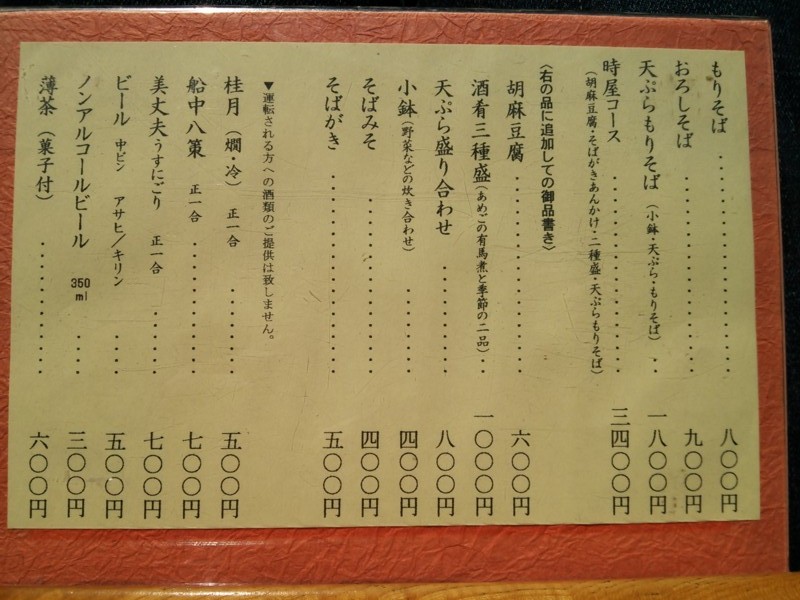 もりそば ・・・・・・・・・・・・・・・・ 八〇〇円
おろしそば ・・・・・・・・・・・・・・・ 九〇〇円
天ぷらもりそば（小鉢・天ぷら・もりそば）・・ 一八〇〇円
時屋コース ・・・・・・・・・・・・・・・ 三四〇〇円
（胡麻豆腐・そばがきあんかけ・二種盛・天ぷらもりそば）
〈右の品に追加しての御品書き〉
胡麻豆腐 ・・・・・・・・・・・・・・ 六〇〇円
酒肴三種盛（あめごの有馬煮と季節の二品）・・ 一〇〇〇円
天ぷら盛り合わせ ・・・・・・・・ 八〇〇円
小鉢（野菜などの炊き合わせ）・・・・・・・ 四〇〇円
そばみそ ・・・・・・・・・・・・・ 四〇〇円
そばがき ・・・・・・・・・・・・・・ 五〇〇円
▼運転される方への酒類のご提供は致しません。
桂月（燗・冷） 正一合 ・・・・・・ 五〇〇円
船中八策 正一合 ・・・・・・・・・ 七〇〇円
美丈夫うすにごり 正一合 ・・・・・ 七〇〇円
ビール 中ビン アサヒ／キリン ・・・・・ 五〇〇円
ノンアルコールビール 350ml ・・・・ 三〇〇円
薄茶（菓子付）・・・・・・・・・・・ 六〇〇円